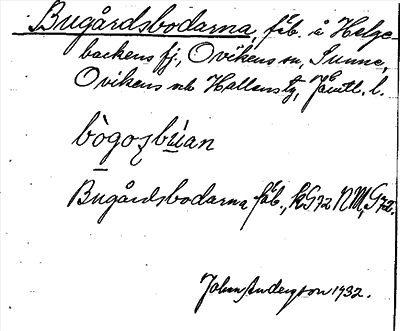 Bugårdsbodarna, fäb. å Helge-
backens fj., Ovikens sn, Sunne,
Ovikens och Hallens tg, Jämtl. l.
bògoʂbùan
Bugårdsbodarna fäb., kG72 NM, G72.
John Anderzson 1932.